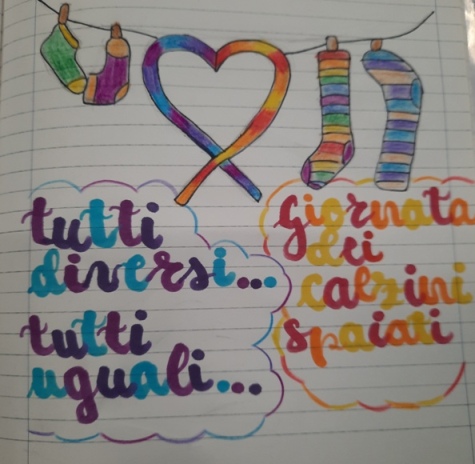 tutti
diversi...
tutti
uguali...
giornata
dei
calzini
spaiati